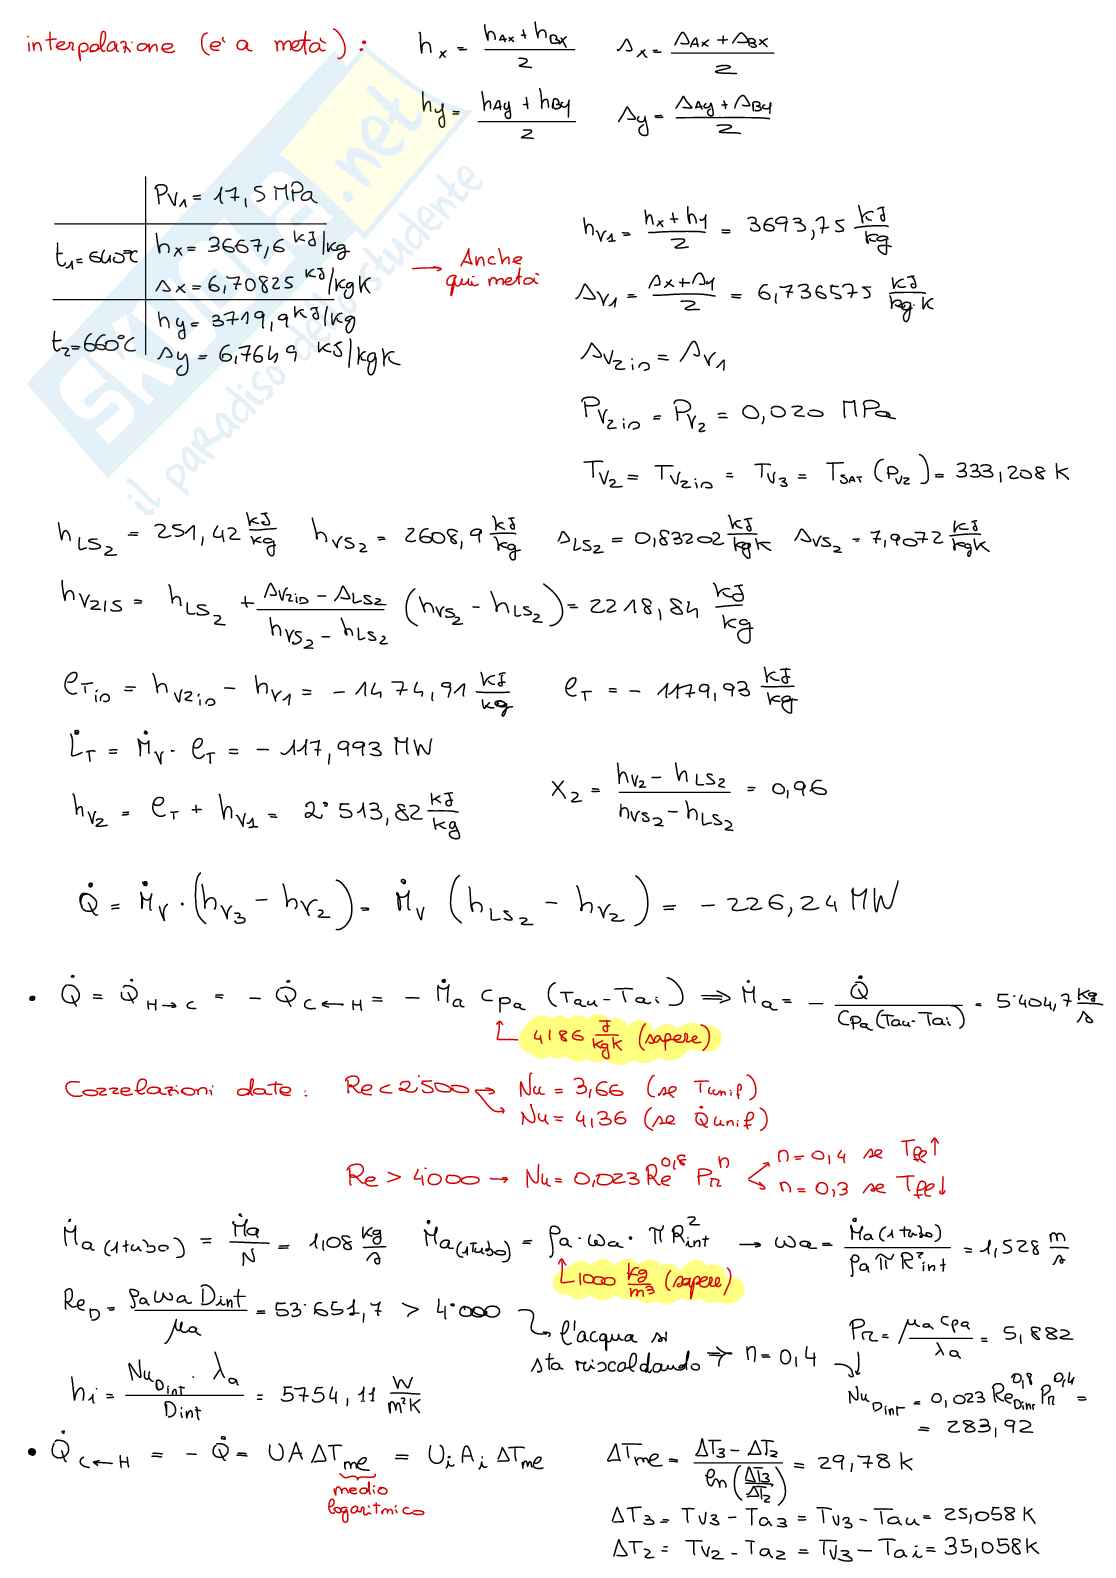 interpolazione (è a metà) : h_x = (h_Ax + h_Bx)/2   s_x = (s_Ax + s_Bx)/2
h_y = (h_Ay + h_By)/2   s_y = (s_Ay + s_By)/2
P_V1 = 17,5 MPa
t_1 = 640°C   h_x = 3667,6 kJ/kg
s_x = 6,70825 kJ/kgK
t_2 = 660°C   h_y = 3719,9 kJ/kg
s_y = 6,7649 kJ/kgK
→ Anche
qui metà
h_V1 = (h_x + h_y)/2 = 3693,75 kJ/kg
s_V1 = (s_x + s_y)/2 = 6,736575 kJ/kg K
s_V2iD = s_V1
P_V2iD = P_V2 = 0,020 MPa
T_V2 = T_V2iD = T_V3 = T_SAT (P_V2) = 333,208 K
h_LS2 = 251,42 kJ/kg   h_VS2 = 2608,9 kJ/kg   s_LS2 = 0,83202 kJ/kgK   s_VS2 = 7,9072 kJ/kgK
h_V2IS = h_LS2 + (s_V2iD - s_LS2)/(h_VS2 - h_LS2) (h_VS2 - h_LS2) = 2218,84 kJ/kg
e_TiD = h_V2iD - h_V1 = -1474,91 kJ/kg   e_T = -1179,93 kJ/kg
L̇_T = Ṁ_V · e_T = -117,993 MW
h_V2 = e_T + h_V1 = 2˙513,82 kJ/kg   x_2 = (h_V2 - h_LS2)/(h_VS2 - h_LS2) = 0,96
Q̇ = Ṁ_V · (h_V3 - h_V2) = Ṁ_V (h_LS2 - h_V2) = -226,24 MW
• Q̇ = Q̇_H→C = - Q̇_C←H = - Ṁ_a c_pa (T_au - T_ai) ⇒ Ṁ_a = - Q̇/(c_pa (T_au - T_ai)) = 5˙404,7 kg/s
↳ 4186 J/kgK (sapere)
Correlazioni date : Re < 2˙500 → Nu = 3,66 (se T unif)
→ Nu = 4,36 (se Q̇ unif)
Re > 4000 → Nu = 0,023 Re^0,8 Pr^n → n = 0,4 se T_fl ↑
→ n = 0,3 se T_fl ↓
Ṁ_a(1tubo) = Ṁ_a/N = 1,08 kg/s   Ṁ_a(1tubo) = ρ_a · w_a · π R²_int → w_a = Ṁ_a(1tubo)/(ρ_a π R²_int) = 1,528 m/s
↳ 1000 kg/m³ (sapere)
Re_D = (ρ_a w_a D_int)/μ_a = 53˙651,7 > 4˙000 ↳ l'acqua si
sta riscaldando → n = 0,4
Pr = (μ_a c_pa)/λ_a = 5,882
h_i = (Nu_Dint · λ_a)/D_int = 5754,11 W/m²K
Nu_Dint = 0,023 Re_Dint^0,8 Pr^0,4 =
= 283,92
• Q̇_C←H = - Q̇ = U A ΔT_me = U_i A_i ΔT_me
medio
logaritmico
ΔT_me = (ΔT3 - ΔT2)/ln(ΔT3/ΔT2) = 29,78 K
ΔT3 = T_V3 - T_a3 = T_V3 - T_au = 25,058 K
ΔT2 = T_V2 - T_a2 = T_V3 - T_ai = 35,058 K
SKUOLA.net
il paradiso dello studente